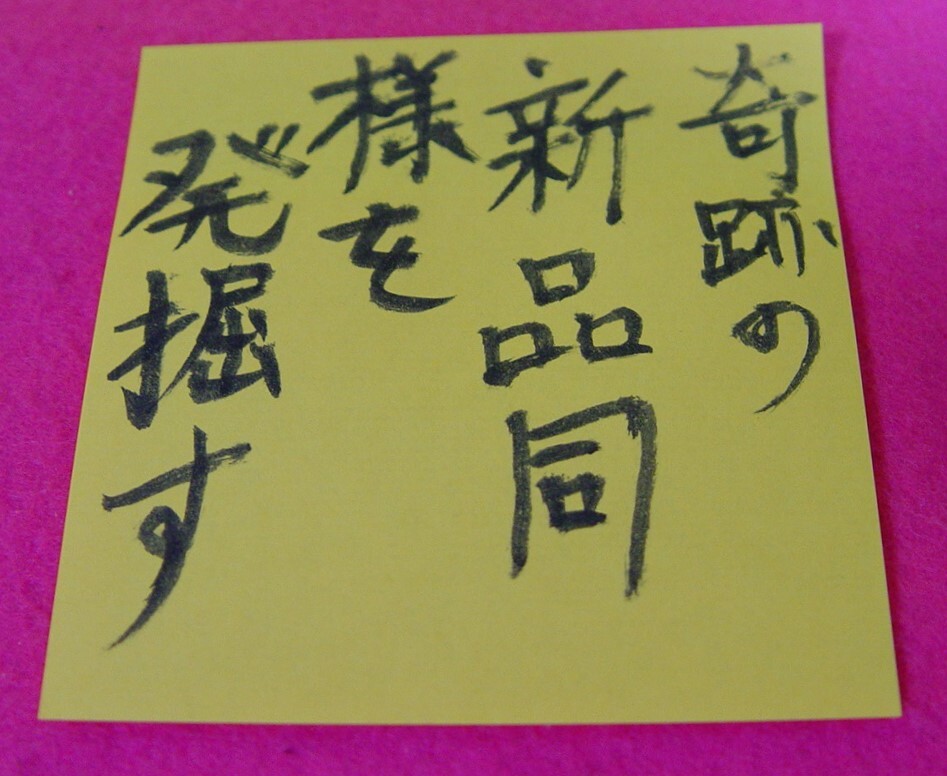 奇跡の
新品同
様を
発掘す